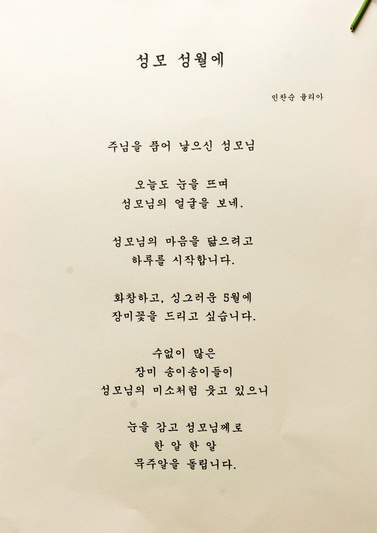 성모 성월에
민찬순 율리아
주님을 품어 낳으신 성모님
오늘도 눈을 뜨며
성모님의 얼굴을 보네.
성모님의 마음을 닮으려고
하루를 시작합니다.
화창하고, 싱그러운 5월에
장미꽃을 드리고 싶습니다.
수없이 많은
장미 송이송이들이
성모님의 미소처럼 웃고 있으니
눈을 감고 성모님께로
한 알 한 알
묵주알을 돌립니다.